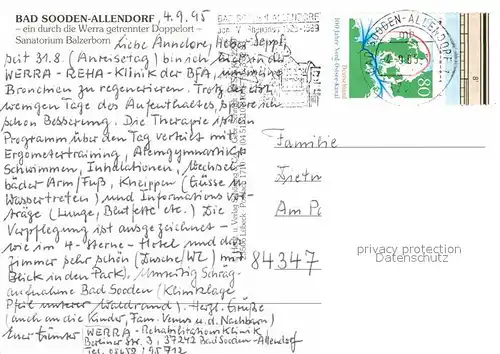 BAD SOODEN-ALLENDORF 4.9.95
– ein durch die Werra getrennter Doppelort –
Sanatorium Balzerborn
Liebe Annelore, lieber Seppl,
seit 31.8. (Anreisetag) bin ich hier in der
WERRA-REHA-Klinik der BfA, um meine
Bronchien zu regenerieren. Trotz der erst
wenigen Tage des Aufenthaltes, spüre ich
schon Besserung. Die Therapie ist ein
Programm über den Tag verteilt mit
Ergometertraining, Atemgymnastik,
Schwimmen, Inhalationen, Wechsel-
bäder Arm/Fuß, Kneippen (Güsse u.
Wassertreten) und Informationsvor-
träge (Lunge, Blutfette etc.) Die
Verpflegung ist ausgezeichnet –
wie im 4-Sterne-Hotel und das
Zimmer sehr schön (Dusche/WC) mit
Blick in den Park). Umseitig Schräg-
aufnahme Bad Sooden (Kliniklage
Pfeil unterer Waldrand). Herzl. Grüße
(auch an die Kinder, Fam. Venus u. d. Nachbarn)
Euer Günter
WERRA-Rehabilitationsklinik
Berliner Str. 3, 37242 Bad Sooden-Allendorf
Tel. 05652/95712
BAD SOODEN-ALLENDORF
100 Jahre Nord-Ostsee-Kanal
Deutschland
80
SOODEN-ALLENDORF
Familie
Dietm
Am Pa
84347
privacy protection
Datenschutz